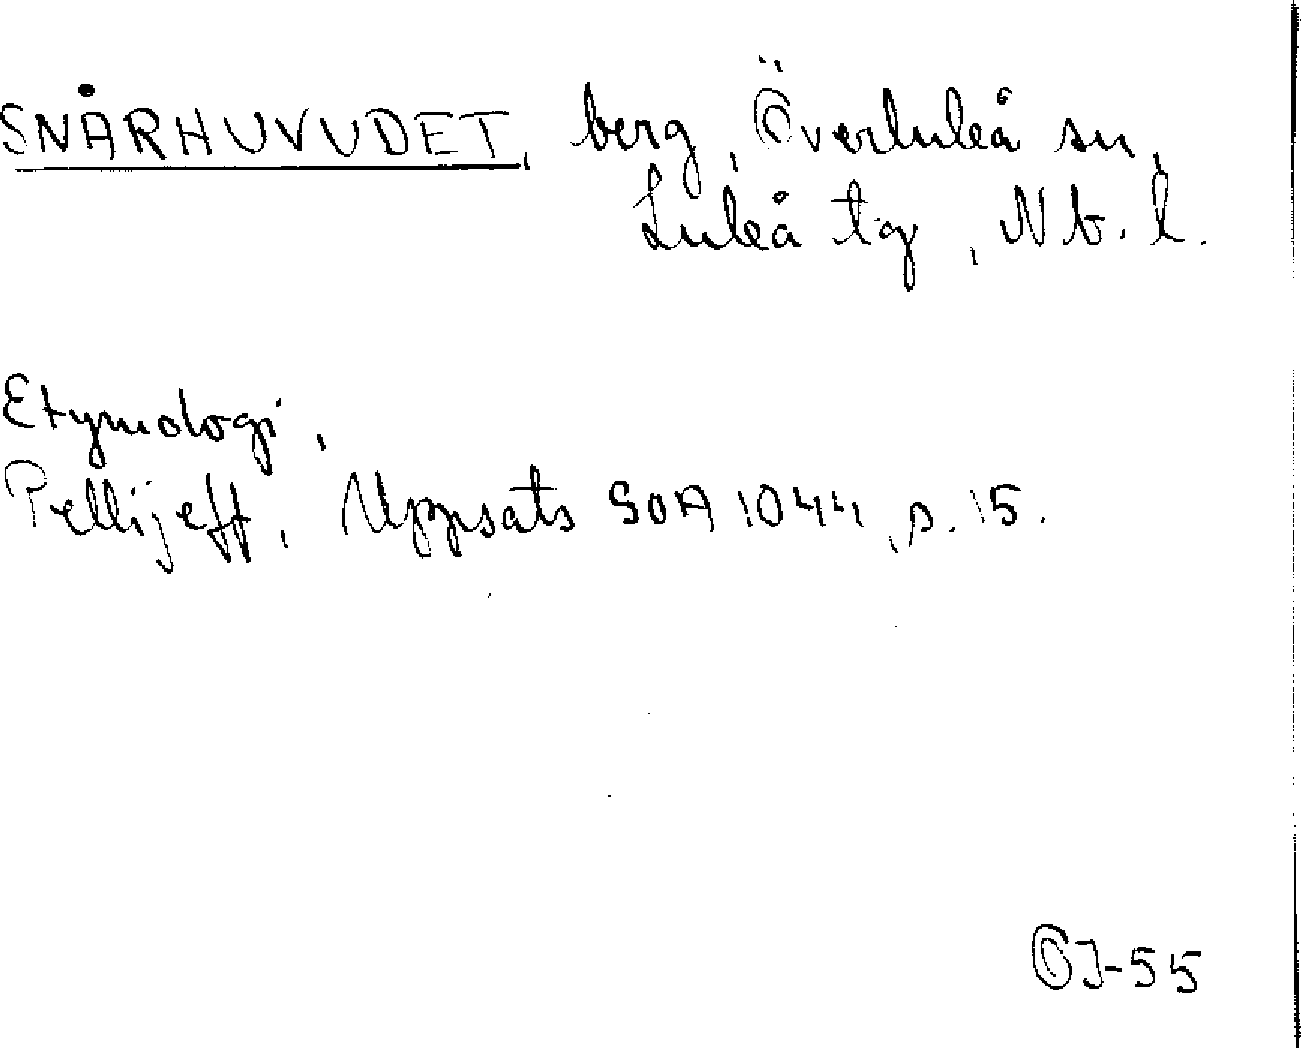 SNÅRHUVUDET, berg, Överluleå sn,
Luleå tg, Nb. l.
Etymologi,
Pellijeff, Uppsats SOA 1044, s. 15.
OJ-55